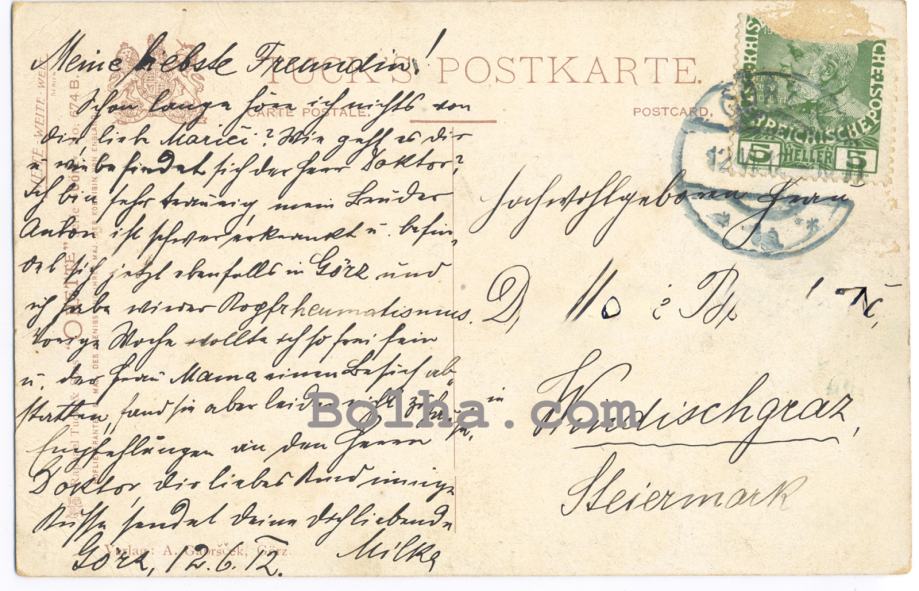 Meine liebste Freundin!
Schon lange höre ich nichts von
dir liebe Marici? Wie geht es dir
u. wie befindet sich der Herr Doktor?
Ich bin sehr traurig mein Bruder
Anton ist schwer erkrankt u. befin-
det sich jetzt ebenfalls in Görz und
ich habe wieder Kopfrheumatismus.
Vorige Woche wollte ich so frei sein
u. der Frau Mama einen Besuch ab-
statten, fand sie aber leider nicht zu Hause.
Empfehlungen an den Herrn
Doktor, dir liebes Kind innige
Küsse sendet deine dichliebende
Milka
Görz, 12.6.12.
Verlag: A. Gabršček, Görz.
TUCK'S POSTKARTE.
CARTE POSTALE.
POSTCARD.
"OILETTE"
5 HELLER 5
Hochwohlgeboren Frau
in
Windischgraz,
Steiermark
Bolha.com